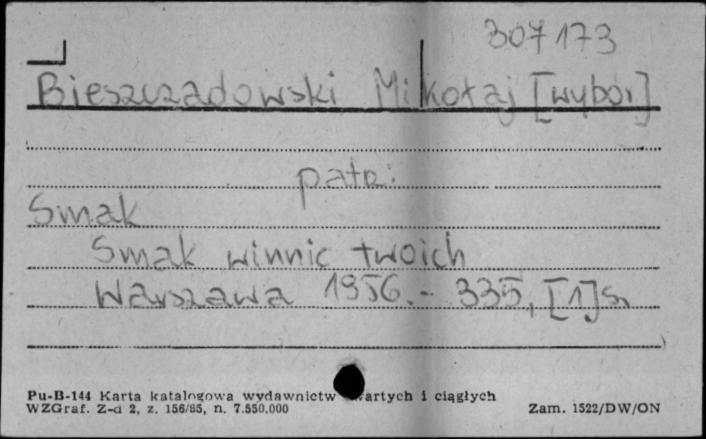 307173
Bieszczadowski Mikołaj [wybór]
patrz:
Smak
Smak winnic twoich
Warszawa 1956.- 335, [1] s.
Pu-B-144 Karta katalogowa wydawnictw zwartych i ciągłych
WZGraf. Z-d 2, z. 156/85, n. 7.550.000
Zam. 1522/DW/ON